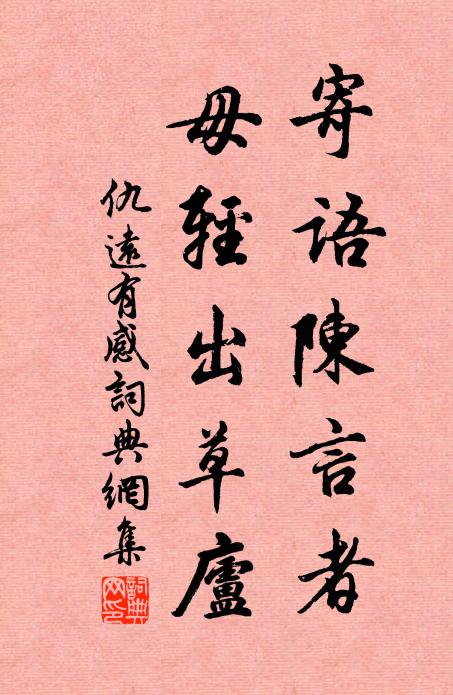 寄語陳言者
毋輕出草廬
仇遠有感詞典網集
詞典网印